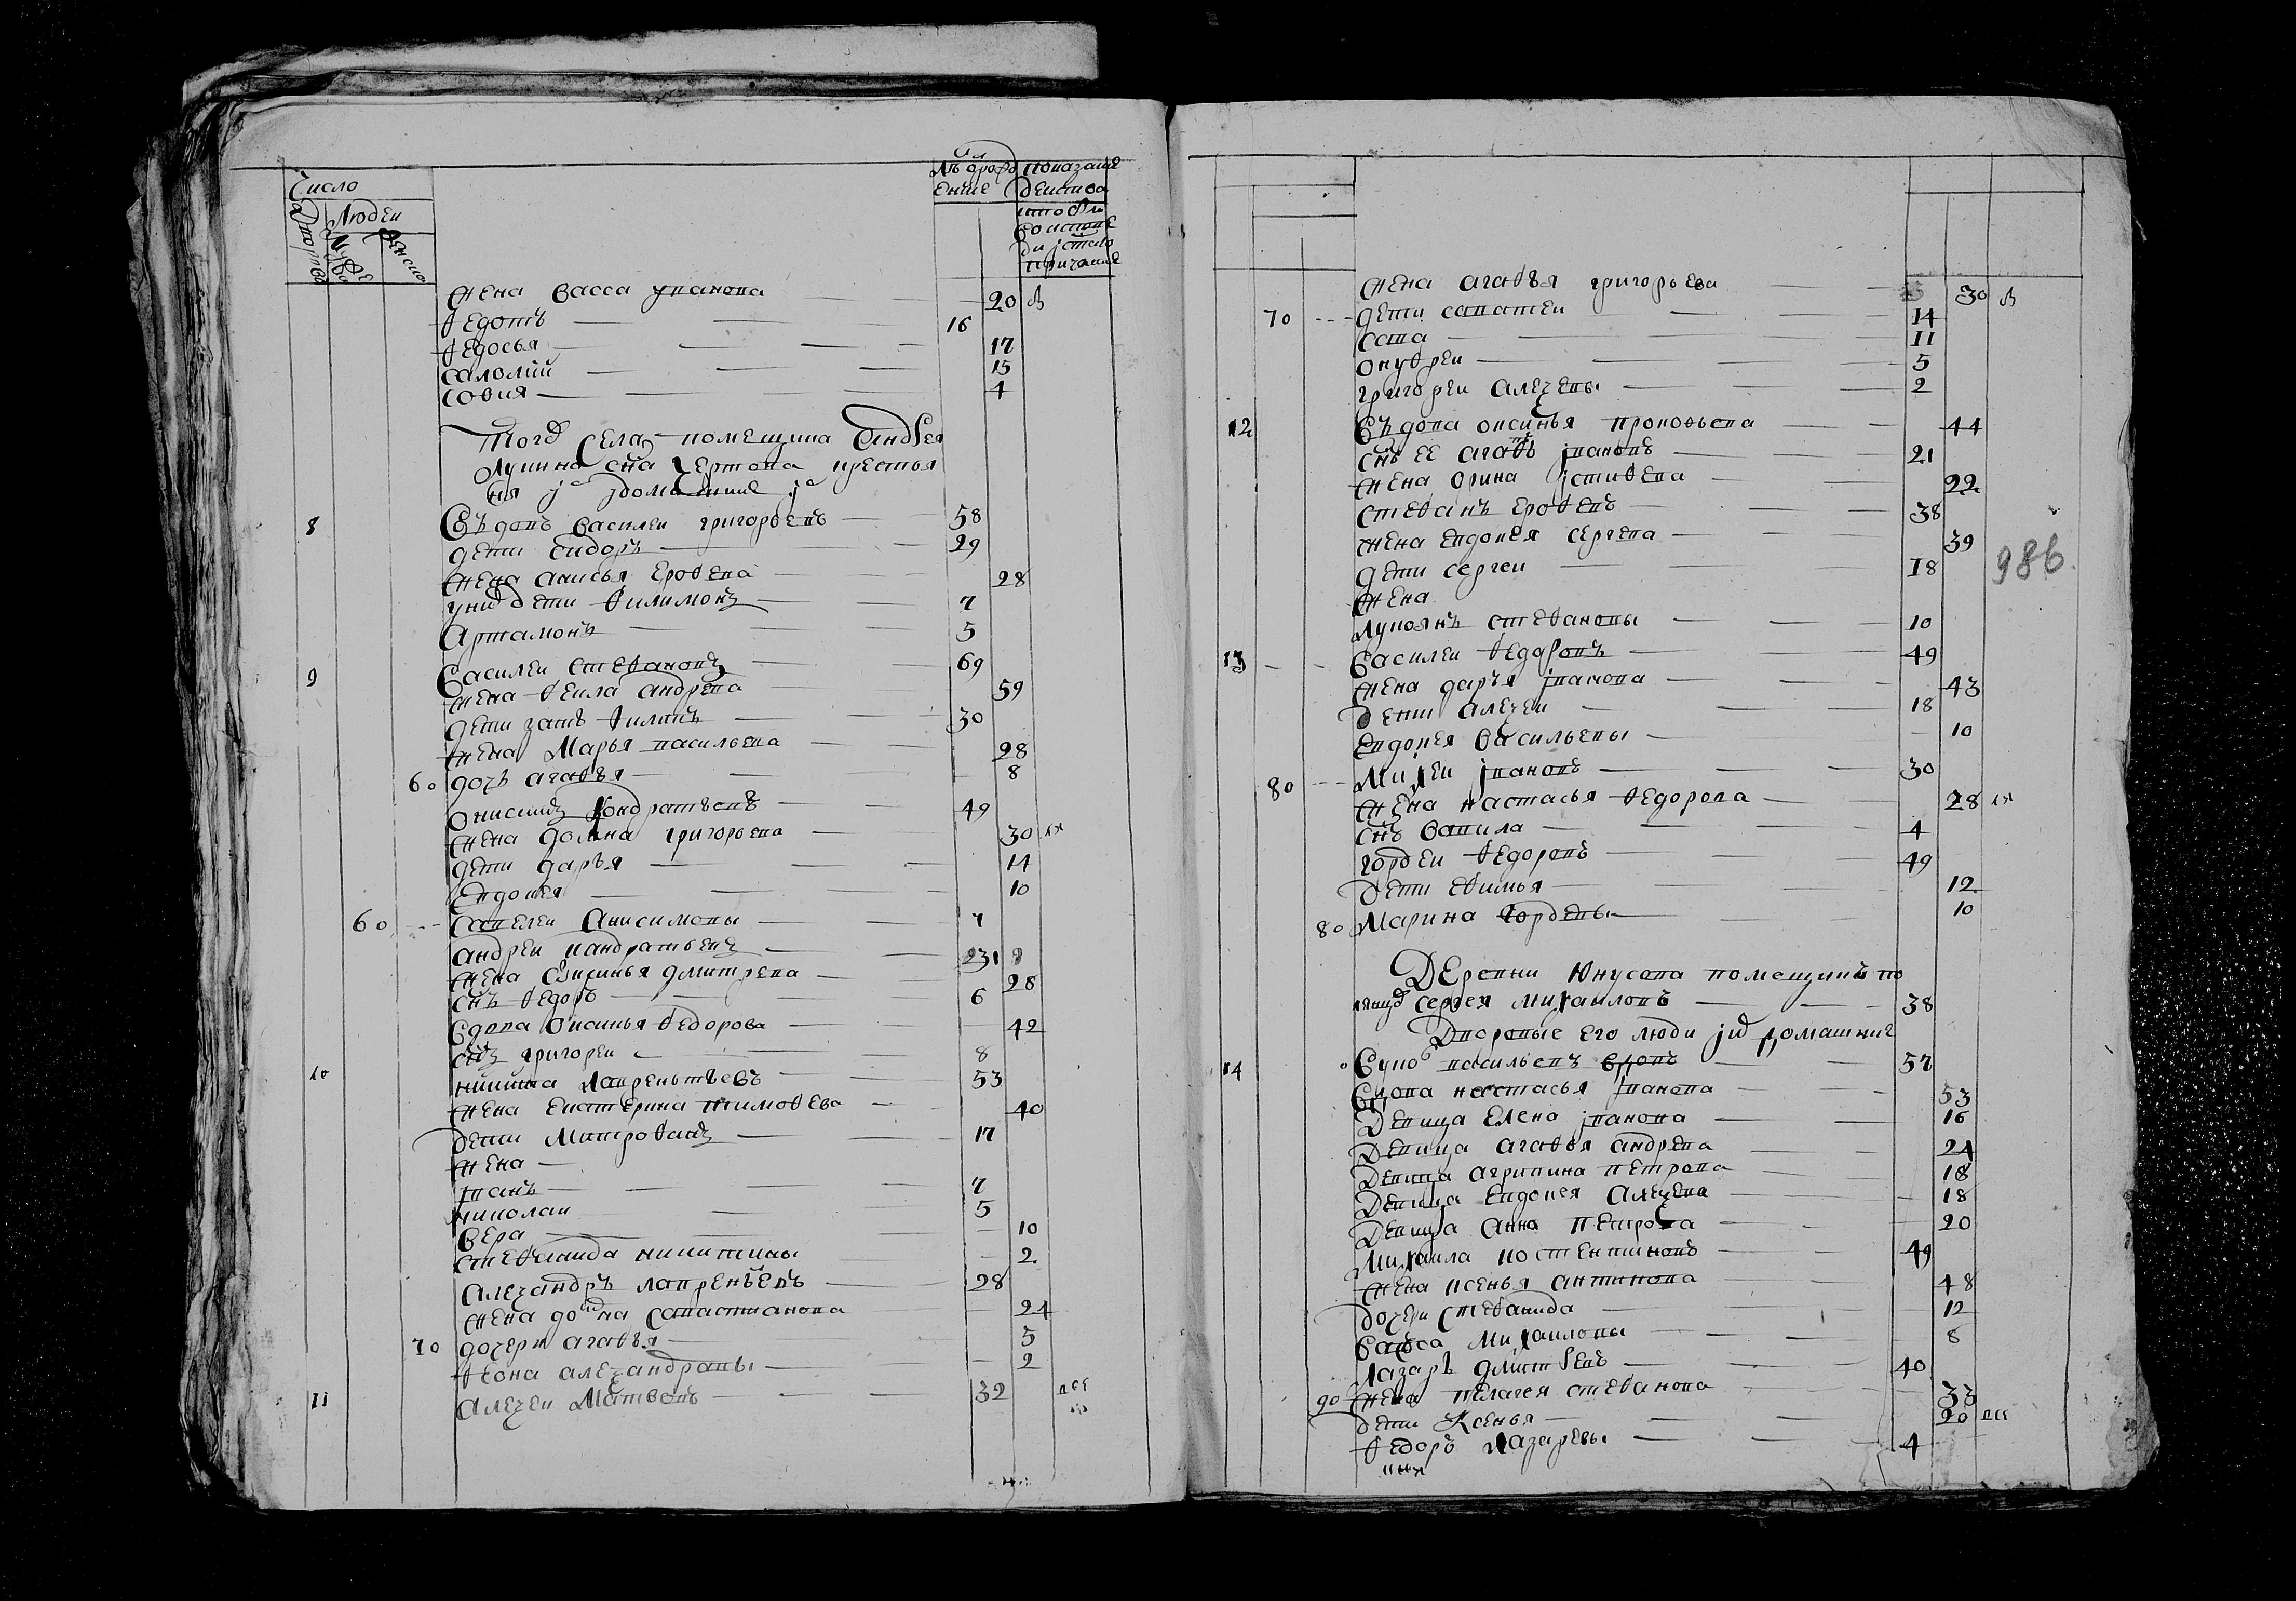 Число
Людеи
жена васса иванова 20 в
федотъ 16
федосья 17
саломии 15
софия 4
того села помещика андрея
лукина сна чертова крестья
8 въдовъ василеи григорьевъ 58
дети сидоръ 29
жена анисья ерофеева 28
у них дети филимонъ 7
артамонъ 5
9 василеи стефановъ 69
жена фекла андреева 59
дети зать филипъ 30
жена марья васильева 28
60 дочь агафья 8
онисимъ кондратьевъ 49
жена домна григорьева 30
дети дарья 14
евдокея 10
60 савелеи анисимовы 7
андреи кандратьевъ
жена дмитрева 28
снъ федоръ 6
вдова оксинья федорова 42
снъ григореи 8
10 никита лаврентьевъ 53
жена екатерина тимофева 40
дети митрофанъ 17
жена
иванъ 7
николаи 5
вера 10
стефанида никитины 2
александръ лавреньевъ 28
жена домна савастианова 24
70 дочери агафья 5
феона александравы 2
11 алексеи матвевъ 32
жена агафья григорьева 30 в
70 дети саватеи 14
сава 11
онуфреи 5
григореи алексевы 2
12 въдова оксинья прокофьева 44
снъ ее агафъ ивановъ 21
жена орина устифева 22
стефанъ ерофевъ 38
жена евдокея сергева 39
дети сергеи 18
986.
жена
лукоянъ стефановы 10
13 василеи федоровъ 49
жена дарья иванова 43
дети алексеи 18
евдокея васильевы 10
80 михеи ивановъ 30
жена настасья федорова 28
снъ вавила 4
гордеи федоровъ 49
дети ефимья 12
80 марина гордевы 10
деревни юнусова помещикъ по
сергея михаиловъ 38
дворовые его люди домашние
14 васильевъ вдовъ 57
вдова настасья иванова 53
девица елена иванова 16
девица агафья андрева 24
девица агрипина петрова 18
девица евдокея алексева 18
девица анна петрова 20
михаила костентиновъ 49
жена ксенья антипова 48
дочери стефанида 12
васса михаиловы 8
лазаръ дмитревъ 40
90 жена пелагея стефанова 33
дети ксенья 20
федоръ лазаревы 4